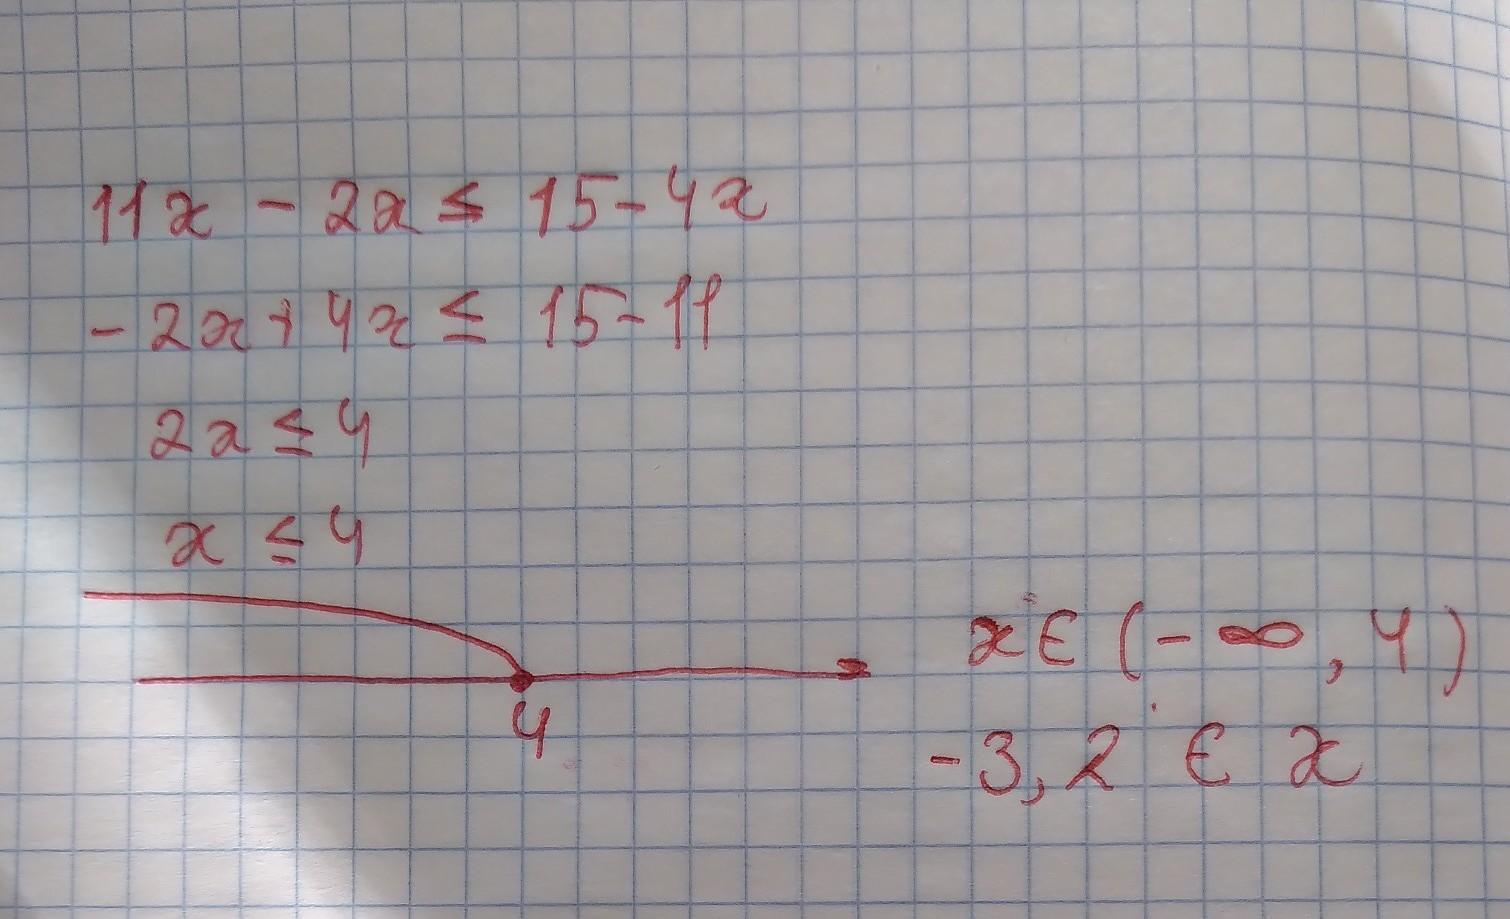 11x - 2x ≤ 15 - 4x
- 2x + 4x ≤ 15 - 11
2x ≤ 4
x ≤ 4
4
x ∈ (- ∞, 4)
-3,2 ∈ x